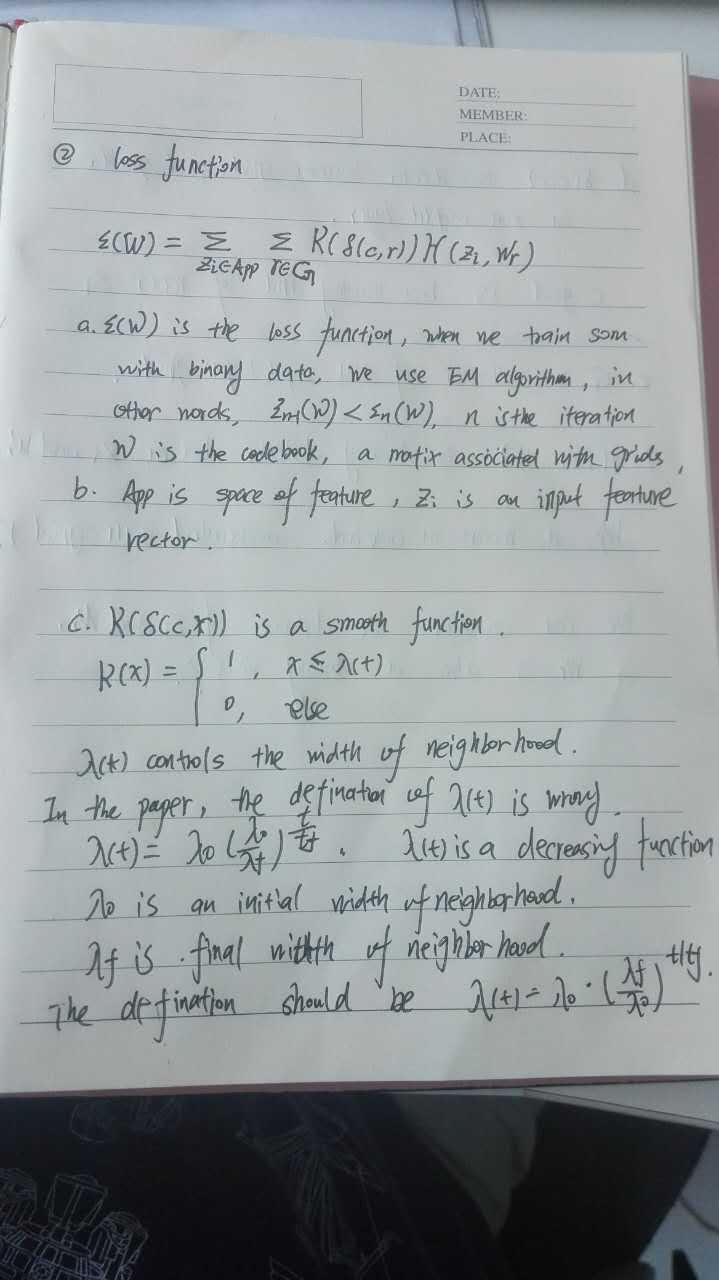 DATE:
MEMBER:
PLACE:
② loss function
Σ(W) = Σ Σ K(δ(c,r)) H(zi, Wr)
zi∈App r∈G
a. Σ(W) is the loss function, when we train som
with binary data, we use EM algorithm, in
other words, Σn+1(W) < Σn(W), n is the iteration
W is the codebook, a matix associated with grids,
b. App is space of feature, zi is an input feature
vector.
c. K(δ(c,r)) is a smooth function.
K(x) = { 1, x ≤ λ(t)
0, else
λ(t) controls the width of neighborhood.
In the paper, the defination of λ(t) is wrong.
λ(t) = λ0 (λ0/λf)^(t/tf). λ(t) is a decreasing function
λ0 is an initial width of neighborhood.
λf is final width of neighborhood.
The defination should be λ(t) = λ0 · (λf/λ0)^(t/tf).